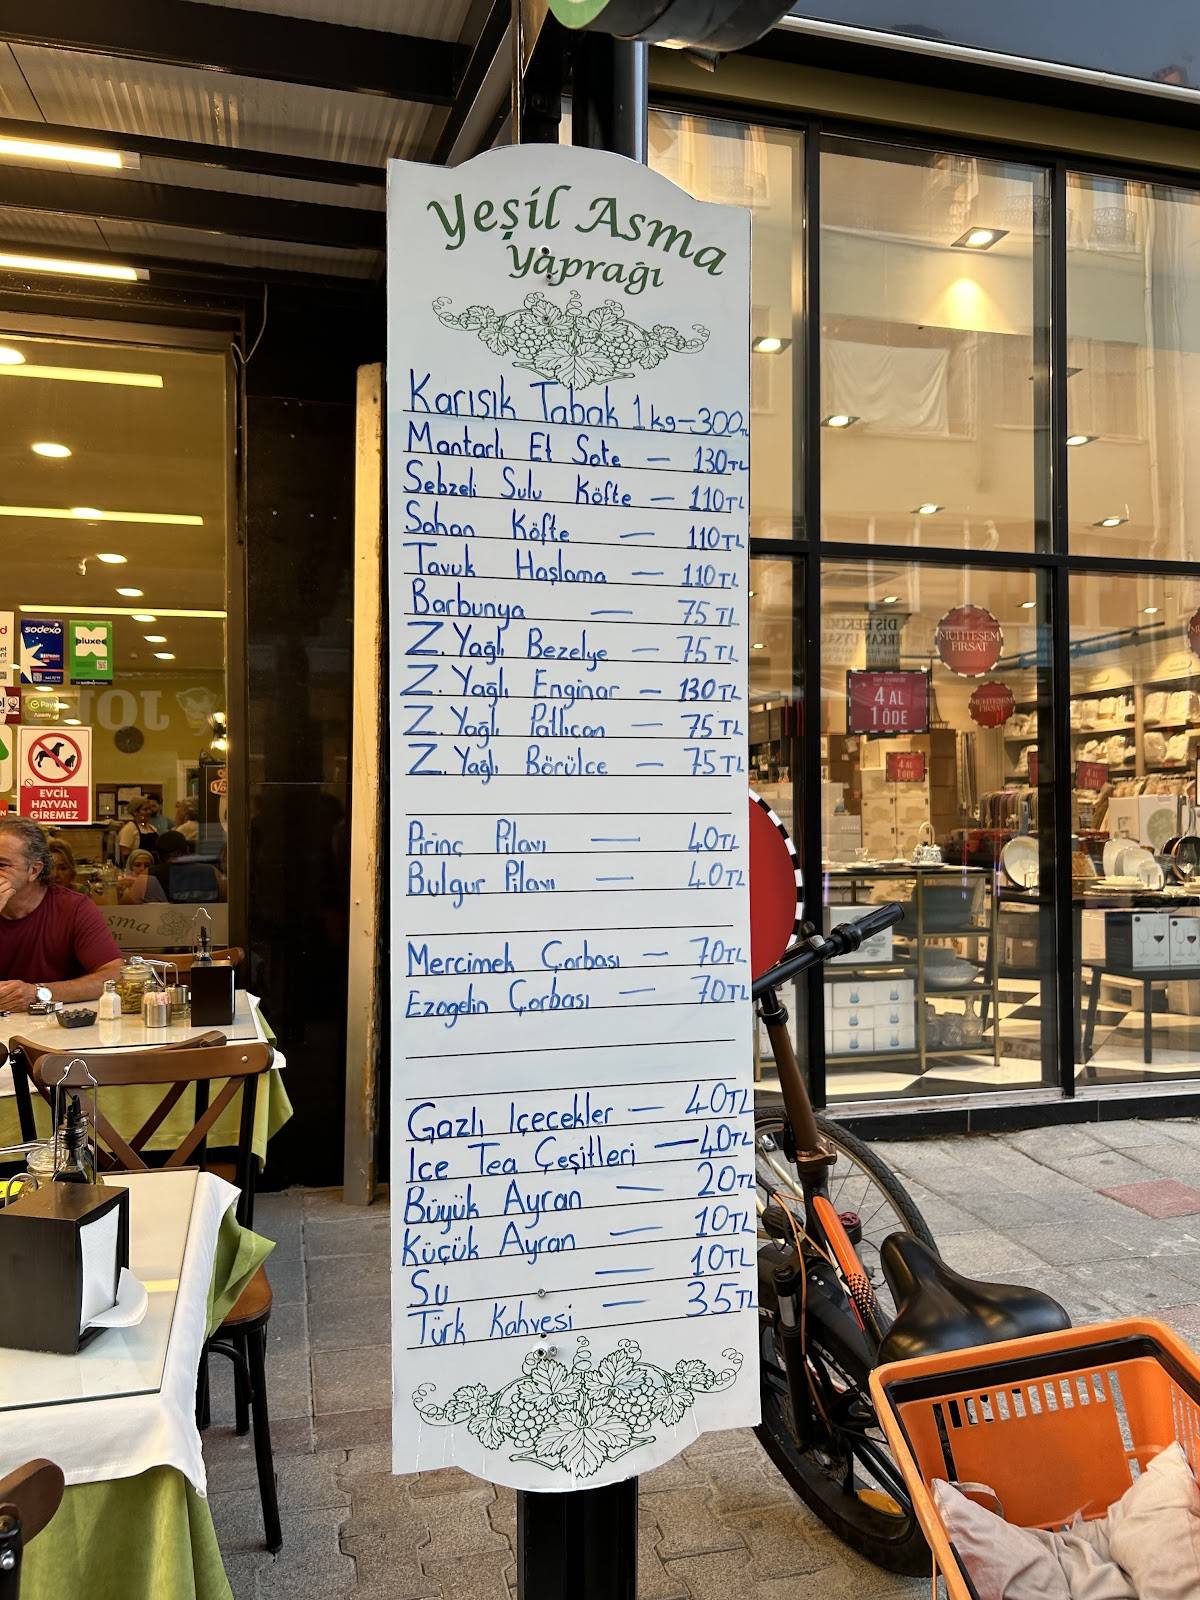 Yeşil Asma
Yaprağı
Karışık Tabak 1kg-300TL
Mantarlı Et Sote — 130TL
Sebzeli Sulu Köfte — 110TL
Sahan Köfte — 110TL
Tavuk Haşlama — 110TL
Barbunya — 75TL
Z. Yağlı Bezelye — 75TL
Z. Yağlı Enginar — 130TL
Z. Yağlı Patlıcan — 75TL
Z. Yağlı Börülce — 75TL
Pirinç Pilavı — 40TL
Bulgur Pilavı — 40TL
Mercimek Çorbası — 70TL
Ezogelin Çorbası — 70TL
Gazlı Içecekler — 40TL
Ice Tea Çeşitleri — 40TL
Büyük Ayran — 20TL
Küçük Ayran — 10TL
Su — 10TL
Türk Kahvesi — 35TL
sodexo
pluxee
EVCİL
HAYVAN
GİREMEZ
MUHTEŞEM
FIRSAT
4 AL
1 ÖDE
MUHTEŞEM
FIRSAT
4 AL
1 ÖDE